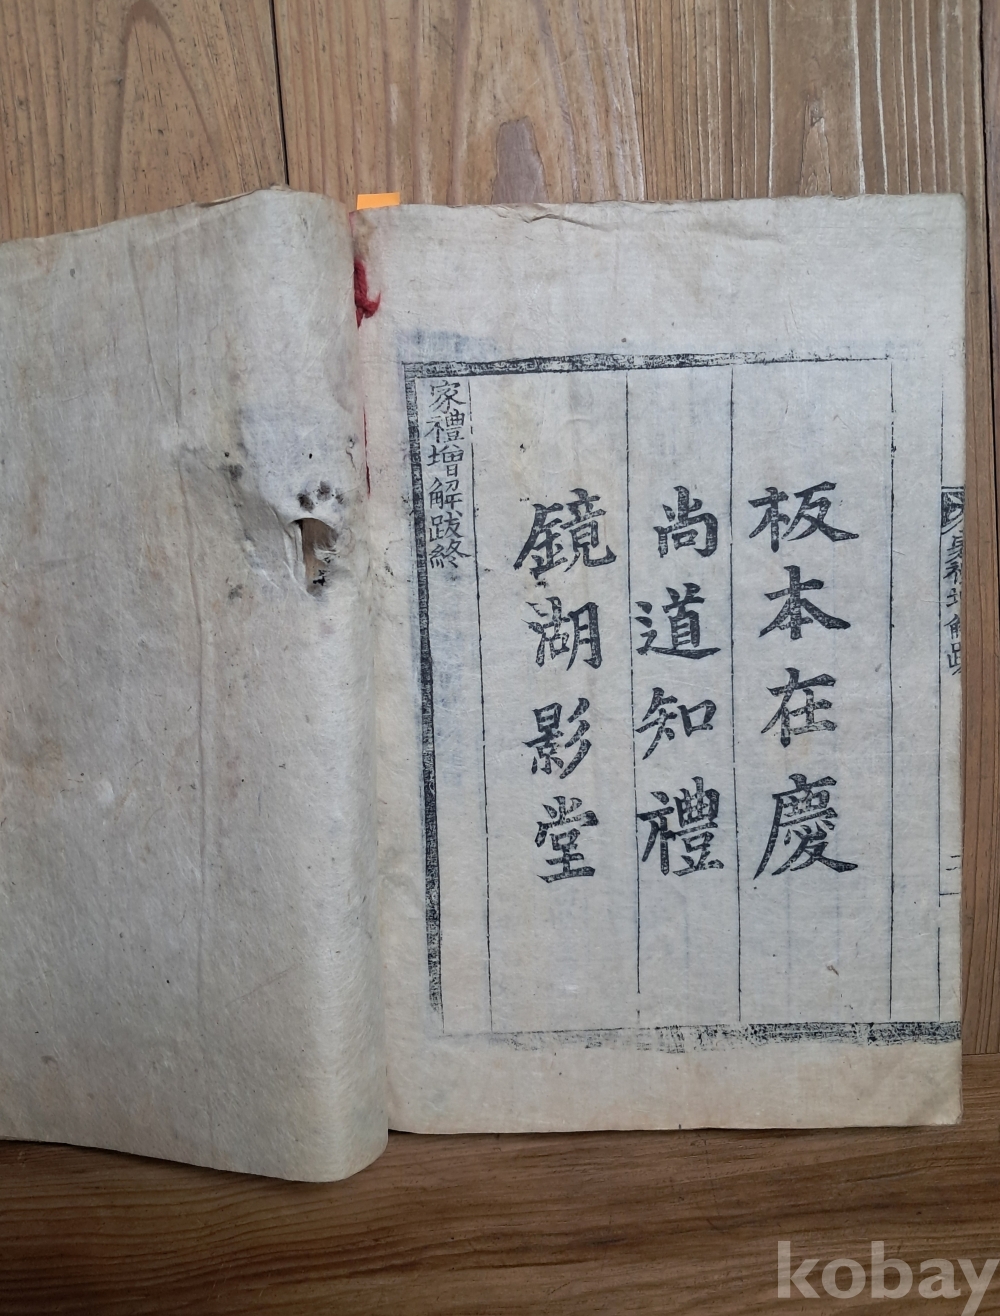 板本在慶
尚道知禮
鏡湖影堂
家禮增解跋終
kobay